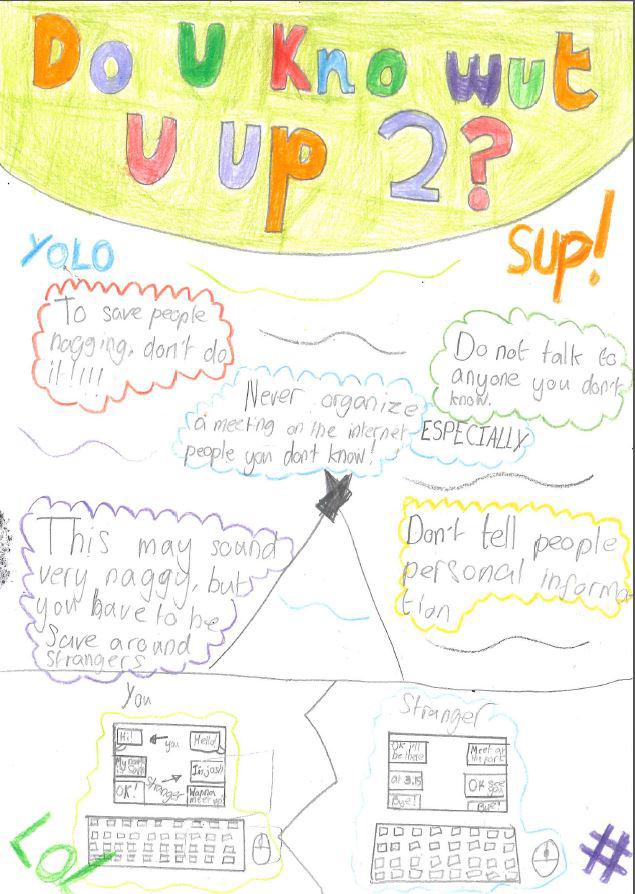 Do U Kno wut
U up 2?
YOLO
Sup!
To save people
nagging, don't do
it!!!!
Do not talk to
anyone you don't
know.
Never organize
a meeting on the internet
people you dont know!
ESPECIALLY
This may sound
very naggy, but
you have to be
Save around
strangers
Don't tell people
personal informa
tion
You
Hi!
you
Hello!
My name
Stranger
I'm josh
OK!
Wanna
meet up?
Stranger
OK I'll
be there
Meet at
the park
at 3.15
OK see
you
Bye!
Bye!
LOL
#